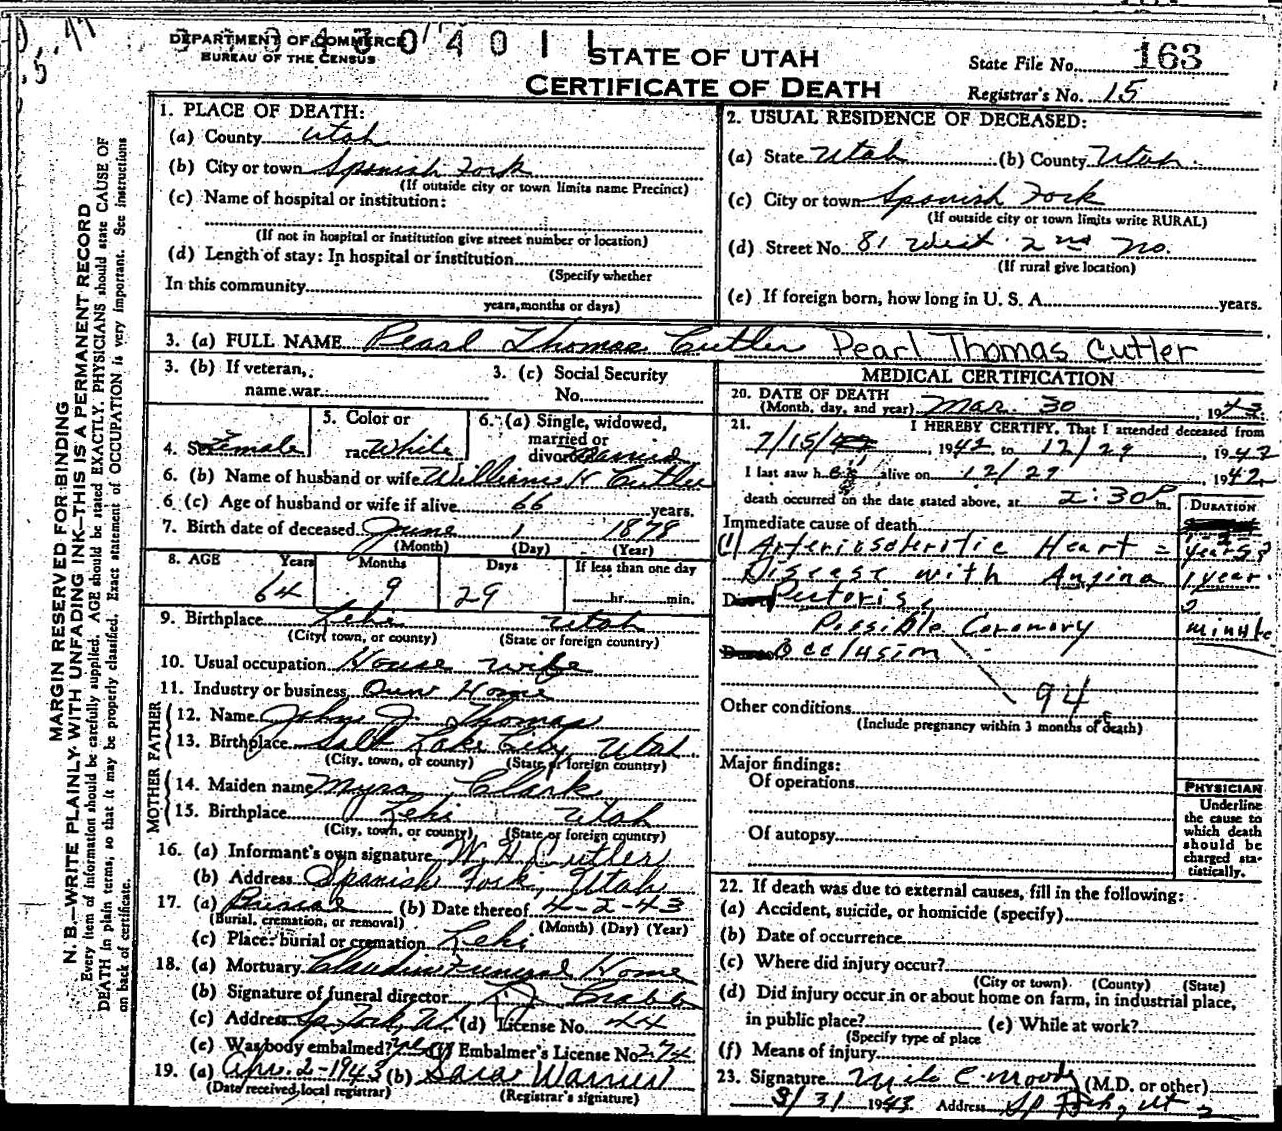 DEPARTMENT OF COMMERCE
BUREAU OF THE CENSUS
STATE OF UTAH
CERTIFICATE OF DEATH
State File No. 163
Registrar's No. 15
MARGIN RESERVED FOR BINDING
N. B.—WRITE PLAINLY WITH UNFADING INK—THIS IS A PERMANENT RECORD
Every item of information should be carefully supplied. AGE should be stated EXACTLY. PHYSICIANS should state CAUSE OF
DEATH in plain terms, so that it may be properly classified. Exact statement of OCCUPATION is very important. See instructions
on back of certificate.
1. PLACE OF DEATH:
(a) County Utah
(b) City or town Spanish Fork
(If outside city or town limits name Precinct)
(c) Name of hospital or institution:
(If not in hospital or institution give street number or location)
(d) Length of stay: In hospital or institution
(Specify whether
In this community
years, months or days)
2. USUAL RESIDENCE OF DECEASED:
(a) State Utah (b) County Utah
(c) City or town Spanish Fork
(If outside city or town limits write RURAL)
(d) Street No. 81 West 2nd No.
(If rural give location)
(e) If foreign born, how long in U. S. A. years.
3. (a) FULL NAME Pearl Thomas Cutler Pearl Thomas Cutler
3. (b) If veteran,
name war
3. (c) Social Security
No.
4. Sex Female
5. Color or
race White
6. (a) Single, widowed,
married or
divorced Married
6. (b) Name of husband or wife William H Cutler
6 (c) Age of husband or wife if alive 66 years.
7. Birth date of deceased June 1 1878
(Month) (Day) (Year)
8. AGE Years Months Days If less than one day
64 9 29 hr. min.
9. Birthplace Lehi Utah
(City, town, or county) (State or foreign country)
10. Usual occupation House wife
11. Industry or business Own Home
FATHER
12. Name John J. Thomas
13. Birthplace Salt Lake City Utah
(City, town, or county) (State or foreign country)
MOTHER
14. Maiden name Myra Clark
15. Birthplace Lehi Utah
(City, town, or county) (State or foreign country)
16. (a) Informant's own signature W. H. Cutler
(b) Address Spanish Fork, Utah
17. (a) Burial (b) Date thereof 4-2-43
(Burial, cremation, or removal) (Month) (Day) (Year)
(c) Place: burial or cremation Lehi
18. (a) Mortuary Claudin Funeral Home
(b) Signature of funeral director
(c) Address Sp. Fork, Ut. (d) License No. 44
(e) Was body embalmed? yes (f) Embalmer's License No. 272
19. (a) Apr. 2-1943 (b) Sara Warner
(Date received, local registrar) (Registrar's signature)
MEDICAL CERTIFICATION
20. DATE OF DEATH
(Month, day, and year) Mar. 30, 1943
21. I HEREBY CERTIFY, That I attended deceased from
7/15/42, 1942 to 12/29, 1942
I last saw her alive on 12/29 1942
death occurred on the date stated above, at 2:30 P m.
DURATION
Immediate cause of death
(1) Arteriosclerotic Heart = 2 years?
Disease with Angina 1 year
Pectoris,
Possible Coronary minute
Occlusion
94
Other conditions
(Include pregnancy within 3 months of death)
Major findings:
Of operations
Of autopsy
PHYSICIAN
Underline
the cause to
which death
should be
charged sta-
tistically.
22. If death was due to external causes, fill in the following:
(a) Accident, suicide, or homicide (specify)
(b) Date of occurrence
(c) Where did injury occur?
(City or town) (County) (State)
(d) Did injury occur in or about home on farm, in industrial place,
in public place? (e) While at work?
(Specify type of place
(f) Means of injury
23. Signature Milo C. Moody (M.D. or other)
3/31 1943 Address Sp Frk, Ut